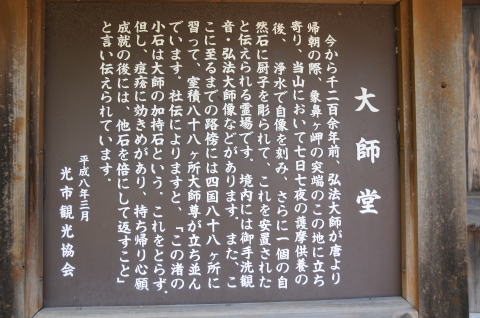 大師堂
今から千二百余年前、弘法大師が唐より
帰朝の際、象鼻ヶ岬の突端のこの地に立ち
寄り、当山において七日七夜の護摩供養の
後、浄水で自像を刻み、さらに一個の自
然石に厨子を彫られて、これを安置された
と伝えられる霊場です。境内には御手洗観
音・弘法大師像などがあります。また、こ
こに至るまでの路傍には四国八十八ヶ所に
習って、室積八十八ヶ所大師尊が立ち並ん
でいます。社伝によりますと、「この渚の
小石は大師の加持石という。これをとらず、
但し、痘瘡に効きめがあり、持ち帰り心願
成就の後には、他石を倍にして返すこと」
と言い伝えられています。
平成八年三月
光市観光協会